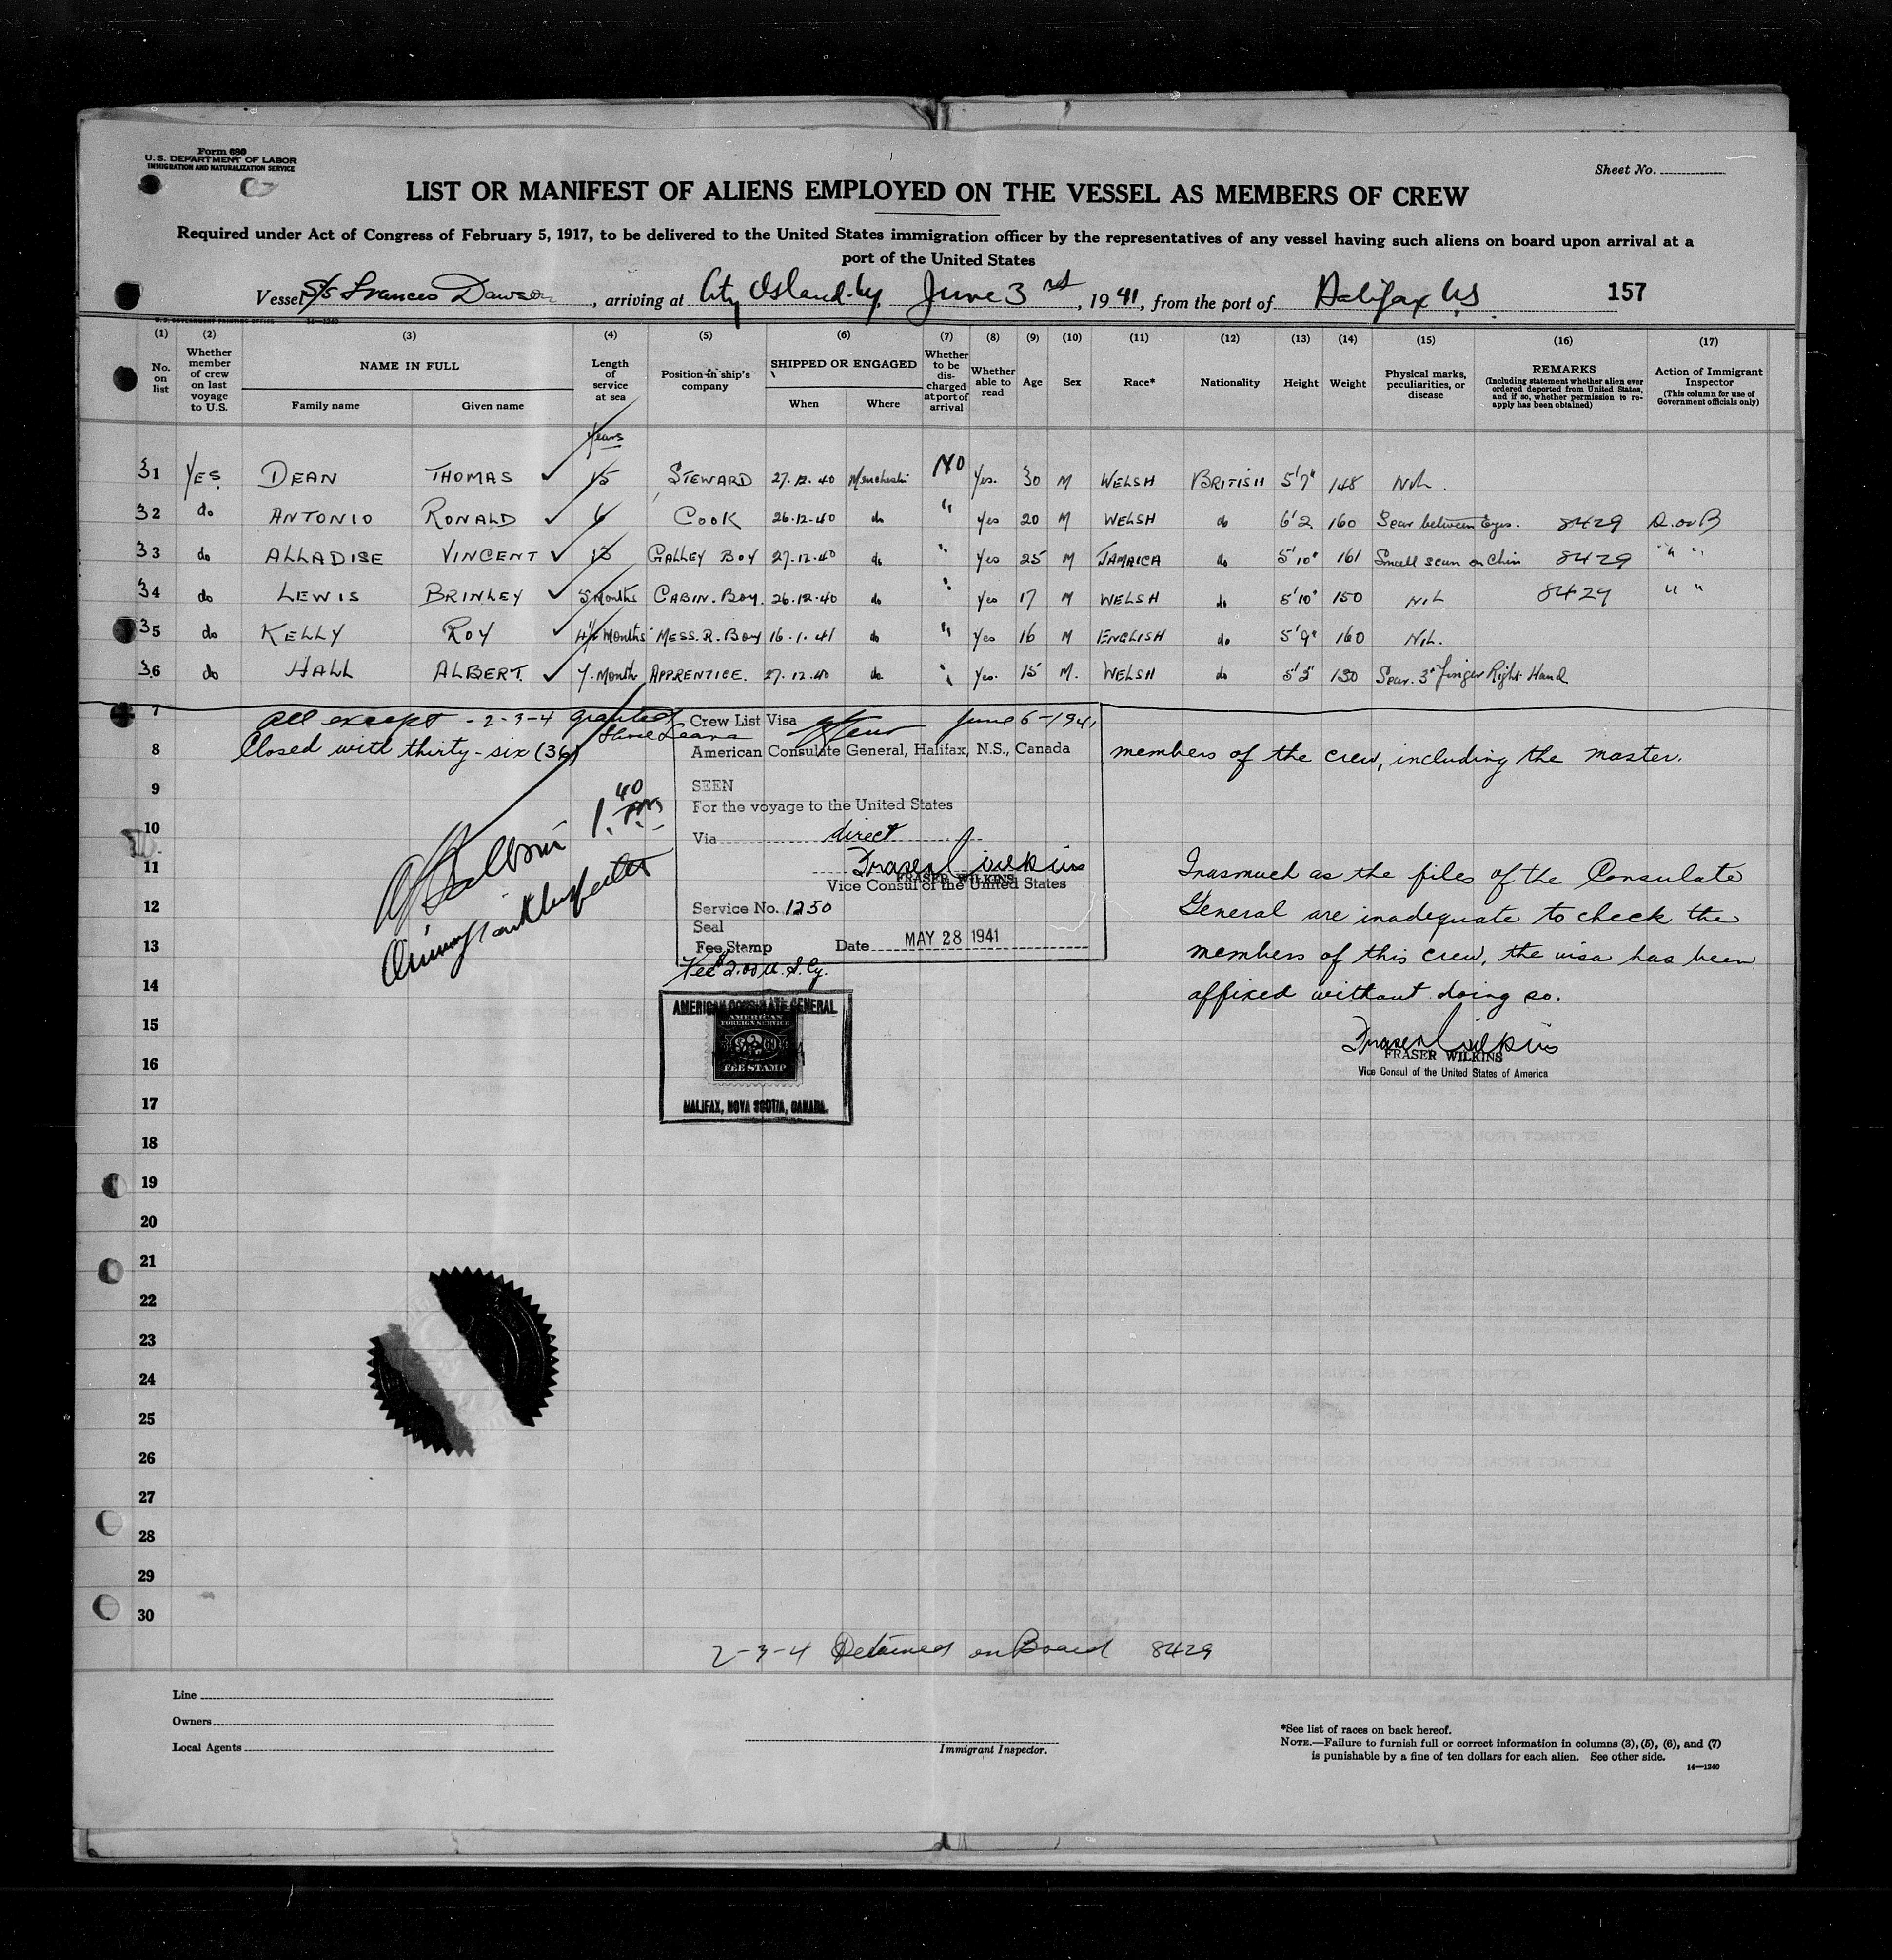 Form 680
U. S. DEPARTMENT OF LABOR
IMMIGRATION AND NATURALIZATION SERVICE
Sheet No.
LIST OR MANIFEST OF ALIENS EMPLOYED ON THE VESSEL AS MEMBERS OF CREW
Required under Act of Congress of February 5, 1917, to be delivered to the United States immigration officer by the representatives of any vessel having such aliens on board upon arrival at a
port of the United States
Vessel S/S Frances Dawson, arriving at City Island. N.Y. June 3rd, 1941, from the port of Halifax N.S. 157
(1) (2) (3) (4) (5) (6) (7) (8) (9) (10) (11) (12) (13) (14) (15) (16) (17)
No. on list
Whether member of crew on last voyage to U.S.
NAME IN FULL
Family name Given name
Length of service at sea
Position in ship's company
SHIPPED OR ENGAGED
When Where
Whether to be discharged at port of arrival
Whether able to read
Age
Sex
Race*
Nationality
Height
Weight
Physical marks, peculiarities, or disease
REMARKS
(Including statement whether alien ever ordered deported from United States, and if so, whether permission to reapply has been obtained)
Action of Immigrant Inspector
(This column for use of Government officials only)
Years
31 YES DEAN THOMAS ✓ 15 STEWARD 27.12.40 Manchester NO Yes. 30 M WELSH BRITISH 5'7" 148 NIL.
32 do ANTONIO RONALD ✓ 6 COOK 26.12.40 do " Yes 20 M WELSH do 6'2 160 Scar between Eyes. 8429 D. on B
33 do ALLADISE VINCENT ✓ 13 GALLEY BOY 27.12.40 do " Yes 25 M JAMAICA do 5'10" 161 Small scar on Chin 8429 " "
34 do LEWIS BRINLEY ✓ 5 Months CABIN. BOY. 26.12.40 do " Yes 17 M WELSH do 5'10" 150 NIL 8429 " "
35 do KELLY ROY ✓ 4½ Months MESS. R. BOY 16.1.41 do " Yes 16 M ENGLISH do 5'9" 160 NIL.
36 do HALL ALBERT. ✓ 7. Month APPRENTICE. 27.12.40 do " Yes. 15 M. WELSH do 5'3" 130 Scar. 3" Finger Right Hand
7 all except - 2-3-4 granted
Shore Leave
June 6-1941
8 Closed with thirty-six (36) members of the crew, including the master.
Crew List Visa
American Consulate General, Halifax, N.S., Canada
SEEN
For the voyage to the United States
Via direct
Fraser Wilkins
FRASER WILKINS
Vice Consul of the United States
Service No. 1250
Seal
Fee Stamp Date MAY 28 1941
Fee $2.00 U.S. Cy.
1.40 P.M.
AMERICAN CONSULATE GENERAL
AMERICAN
FOREIGN SERVICE
FEE STAMP
HALIFAX, NOVA SCOTIA, CANADA.
Inasmuch as the files of the Consulate
General are inadequate to check the
members of this crew, the visa has been
affixed without doing so.
Fraser Wilkins
FRASER WILKINS
Vice Consul of the United States of America
9
10
11
12
13
14
15
16
17
18
19
20
21
22
23
24
25
26
27
28
29
30
2-3-4 Detained on Board 8429
Line
Owners
Local Agents
Immigrant Inspector.
*See list of races on back hereof.
NOTE.—Failure to furnish full or correct information in columns (3), (5), (6), and (7)
is punishable by a fine of ten dollars for each alien. See other side.
14—1240